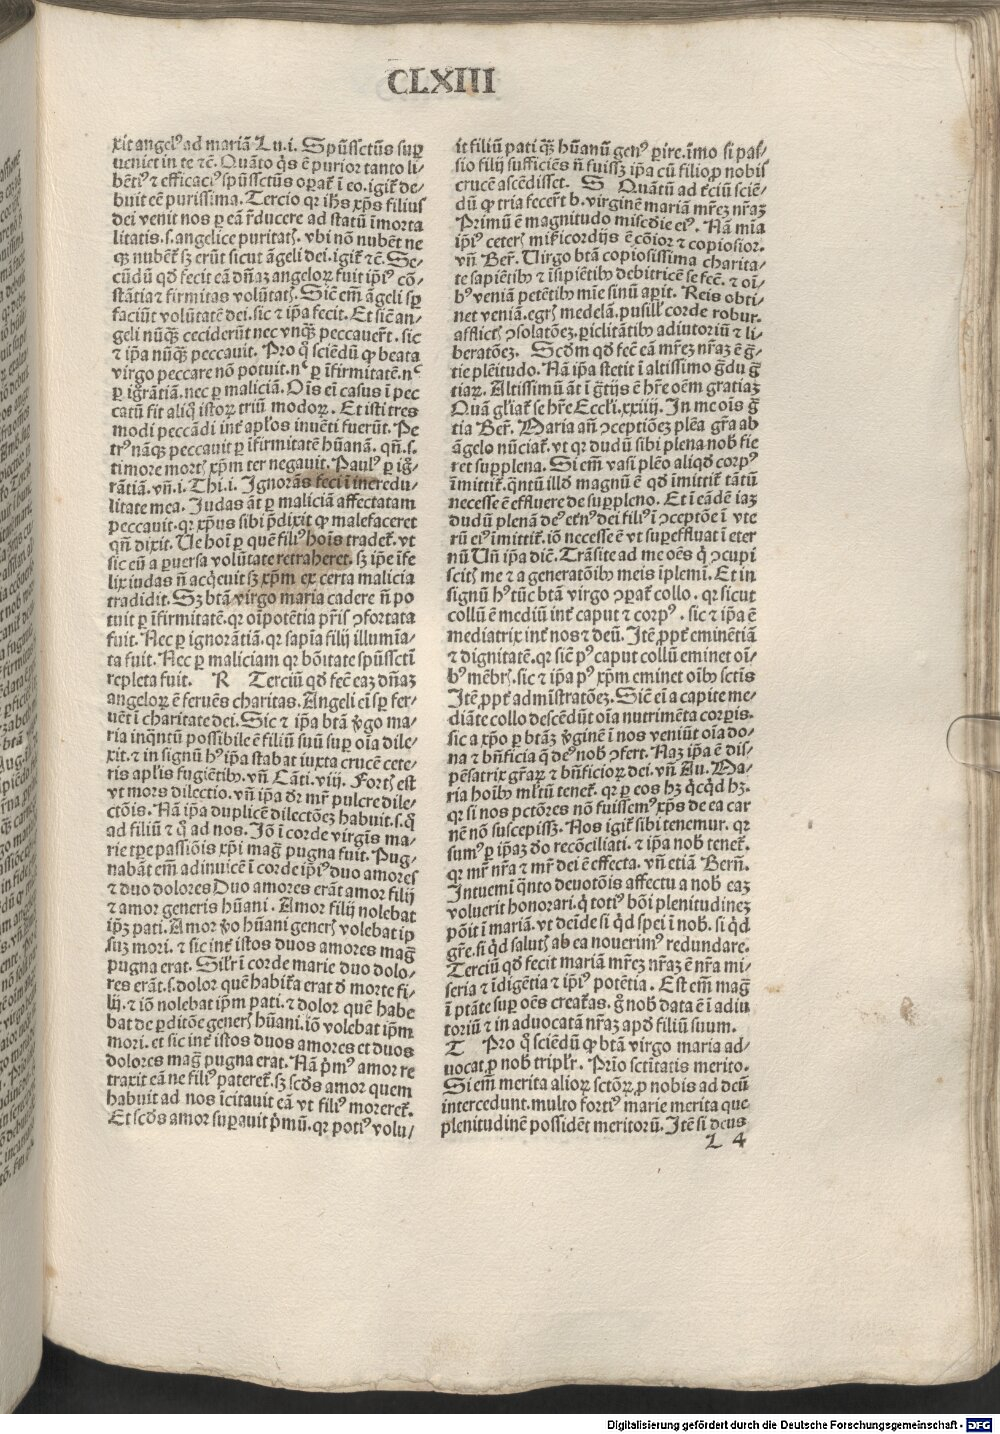 CLXIII
xit angelꝰ ad mariā Lu.i. Spūssctūs suꝑ
ueniet in te ⁊ē. Quāto q̇s ē purior tanto li-
bētiꝰ ⁊ efficaciꝰ spūssctūs oꝑat᷑ ī eo. igit᷑ de-
buit eē purissima. Tercio qꝛ ihs xp̄s filius
dei venit nos ꝑ eā r̄ducere ad statū īmorta
litatis.s. angelice puritatꝭ. vbi nō nubēt ne
qꝫ nubēt᷑ sꝫ erūt sicut āgeli dei. igit᷑ ⁊ē. Se-
cūdū qd̄ fecit eā dn̄aꝫ angeloꝝ fuit ip̄iꝰ cō-
stātia ⁊ firmitas volūtatꝭ. Sic̄ em̄ āgeli sꝑ
faciūt volūtatē dei. sic ⁊ ip̄a fecit. Et sic̄ an-
geli nūqꝫ ceciderūt nec vnqꝫ peccauer̄t. sic
⁊ ip̄a nūqꝫ peccauit. Pro q̊ sciēdū ꝙ beata
virgo peccare nō potuit. nᶜ ꝑ īfirmitatē. nᶜ
ꝑ igrātiā. nec ꝑ maliciā. Oīs ei casus ī pec
catū fit aliq̊ istoꝝ triū modoꝝ. Et isti tres
modi peccādi int᷑ apl̄os inuēti fuerūt. Pe
trꝰ nāqꝫ peccauit ꝑ īfirmitatē hūanā. qn̄.s.
timore mortꝭ xp̄m ter negauit. Paulꝰ ꝑ ig̊-
rātiā. vn̄.i. Thi.i. Ignorās feci ī incredu-
litate mea. Judas āt ꝑ maliciā affectatam
peccauit. qꝛ xp̄us sibi p̄dixit ꝙ malefaceret
qn̄ dixit. Ue hoī ꝑ quē filiꝰ hoīs tradet᷑. vt
sic eū a ꝑuersa volūtate retraheret. sꝫ ip̄e īfe
lix iudas n̄ acq̇euit sꝫ xp̄m ex certa malicia
tradidit. Sꝫ btā virgo maria cadere n̄ po
tuit ꝑ īfirmitatē. qꝛ oīpotētia pr̄is ꝯfortata
fuit. Nec ꝑ ignorātiā. qꝛ sapīa filij illumīa-
ta fuit. Nec ꝑ maliciam qꝛ bōitate spūssctī
repleta fuit. R Terciū qd̄ fec̄ eaꝫ dn̄aꝫ
angeloꝝ ē feruēs charitas. Angeli ei sꝑ fer-
uēt ī charitate dei. Sic ⁊ ip̄a btā v̇go ma-
ria inq̄ntū possibile ē filiū suū suꝑ oīa dile-
xit. ⁊ in signū hꝰ ip̄a stabat iuxta crucē cete-
ris apl̄is fugiētibꝫ. vn̄ Cāti. viij. Fortꝭ est
vt mors dilectio. vn̄ ip̄a dr̄ mr̄ pulcre dile-
ctōis. Nā ip̄a duplicē dilectōeꝫ habuit.s. q̄
ad filiū ⁊ q̄ ad nos. Jō ī corde virgīs ma-
rie tꝑe passiōis xp̄i mag̊ pugna fuit. Pug-
nabāt em̄ adinuicē ī corde ip̄iꝰ duo amores
⁊ duo dolores Duo amores erāt amor filij
⁊ amor generis hūani. Amor filij nolebat
ip̄ꝫ pati. Amor v̊o hūani generꝭ volebat ip̄
suꝫ mori. ⁊ sic int᷑ istos duos amores mag̊
pugna erat. Silr̄ ī corde marie duo dolo-
res erāt.s. dolor quē habit᷑a erat đ morte fi-
lij. ⁊ iō nolebat ip̄m pati. ⁊ dolor quē habe
bat de ꝑditōe generꝭ hūani. iō volebat ip̄m
mori. et sic int᷑ istos duos amores et duos
dolores mag̊ pugna erat. Nā p̄mꝰ amor re
traxit eā ne filiꝰ pateret᷑. sꝫ scd̄s amor quem
habuit ad nos īcitauit eā vt filiꝰ moreret᷑.
Et scd̄s amor suꝑauit p̄mū. qꝛ potiꝰ volu-
it filiū pati qꝫ hūanū genꝰ ꝑire. īmo si pas-
sio filij sufficiēs n̄ fuissꝫ ip̄a cū filio ꝓ nobis
crucē ascēdisset. S Quātū ad t᷑ciū sciē-
dū ꝙ tria fecer̄t b. virginē mariā mr̄eꝫ nr̄aꝫ
Primū ē magnitudo misc̄die eiꝰ. Nā mīa
ip̄iꝰ ceterꝭ mīs̄icordijs ē cōior ⁊ copiosior.
vn̄ Ber̄. Uirgo btā copiosissima charita-
te sapiētibꝫ ⁊ īsipiētibꝫ debitricē se fec̄. ⁊ oī-
bꝰ veniā petētibꝫ mīe sinū aꝑit. Reis obti-
net veniā. egrꝭ medelā. pusill̄ corde robur.
afflictꝭ ꝯsolatōeꝫ. ꝑiclitātibꝫ adiutoriū ⁊ li-
beratōeꝫ. Scd̄m qd̄ fec̄ eā mr̄eꝫ nr̄aꝫ ē g̊-
tie plēitudo. Nā ip̄a stetit ī altissimo g̊du g̊
tiaꝝ. Altissimū āt ī g̊tijs ē hr̄e oēm gratiaꝫ
Quā gliat᷑ se hr̄e Eccli. xxiiij. In me oīs g̊
tia Ber̄. Maria an̄ ꝯceptiōeꝫ plēa gr̄a ab
āgelo nūciat᷑. vt qꝛ dudū sibi plena nob̄ fie
ret suꝑplena. Si em̄ vasi plēo aliqđ corpꝰ
īmittit᷑. q̄ntū illđ magnū ē qđ imittit᷑ tātū
necesse ē effluere de suꝑpleno. Et ī eādē iaꝫ
dudū plenā deꝰ et̄nꝰ dei filiꝰ ī ꝯceptōe ī vte
rū eiꝰ imittit᷑. iō necesse ē vt suꝑeffluat ī eter
nū Un̄ ip̄a dic̄. Trāsite ad me oēs q̇ ꝯcupi
scitꝭ me ⁊ a generatōibꝫ meis īplemī. Et in
signū hꝰ tūc btā virgo ꝯꝑat᷑ collo. qꝛ sicut
collū ē mediū int᷑ caput ⁊ corpꝰ. sic ⁊ ip̄a ē
mediatrix int᷑ nos ⁊ deū. Itē ꝓpt᷑ eminētiā
⁊ dignitatē. qꝛ sic̄ pꝰ caput collū eminet oī-
bꝰ mēbrꝭ. sic ⁊ ip̄a pꝰ xp̄m eminet oībꝫ sctīs
Itē ꝓpt᷑ admīstratōeꝫ. Sic̄ ei a capite me-
diāte collo descēdūt oīa nutrimēta corꝑis.
sic a xp̄o ꝑ btāꝫ v̇ginē ī nos veniūt oīa do-
na ⁊ bn̄ficia q̄ deꝰ nob̄ ꝯfert. Naꝫ ip̄a ē dis-
pēsatrix gr̄aꝝ ⁊ bn̄ficioꝝ dei. vn̄ Au. Ma-
ria hoībꝫ ml̄tū tenet᷑. qꝛ ꝑ eos hꝫ q̇cq̇d hꝫ.
qꝛ si nos pctōres nō fuissemꝰ xp̄s de ea car
nē nō suscepissꝫ. Nos igit᷑ sibi tenemur. qꝛ
sumꝰ ꝑ ip̄aꝫ đo recōciliati. ⁊ ip̄a nob̄ tenet᷑.
qꝛ mr̄ nr̄a ⁊ mr̄ dei ē effecta. vn̄ etiā Bern̄.
Intuemī q̄nto deuotōis affectu a nob̄ eaꝫ
voluerit honorari. q̇ totiꝰ bōi plenitudineꝫ
pōit ī mariā. vt deīde si q̇d spei ī nob̄. si q̇d
gr̄e. si q̇d salutꝭ ab ea nouerimꝰ redundare.
Terciū qđ fecit mariā mr̄eꝫ nr̄aꝫ ē nr̄a mi-
seria ⁊ īdigētia ⁊ ip̄iꝰ potētia. Est em̄ mag̊
ī ptāte suꝑ oēs creat᷑as. g̊ nob̄ data ē ī adiu
toriū ⁊ in aduocatā nr̄aꝫ apđ filiū suum.
T Pro q̊ sciēdū ꝙ btā virgo maria ad-
uocat ꝓ nob̄ triplr̄. Prīo sctītatis merito.
Si em̄ merita alioꝝ sctōꝝ ꝓ nobis ad deū
intercedunt. multo fortiꝰ marie merita que
plenitudinē possidēt meritoꝝ. Itē si deus
L 4
Digitalisierung gefördert durch die Deutsche Forschungsgemeinschaft - DFG